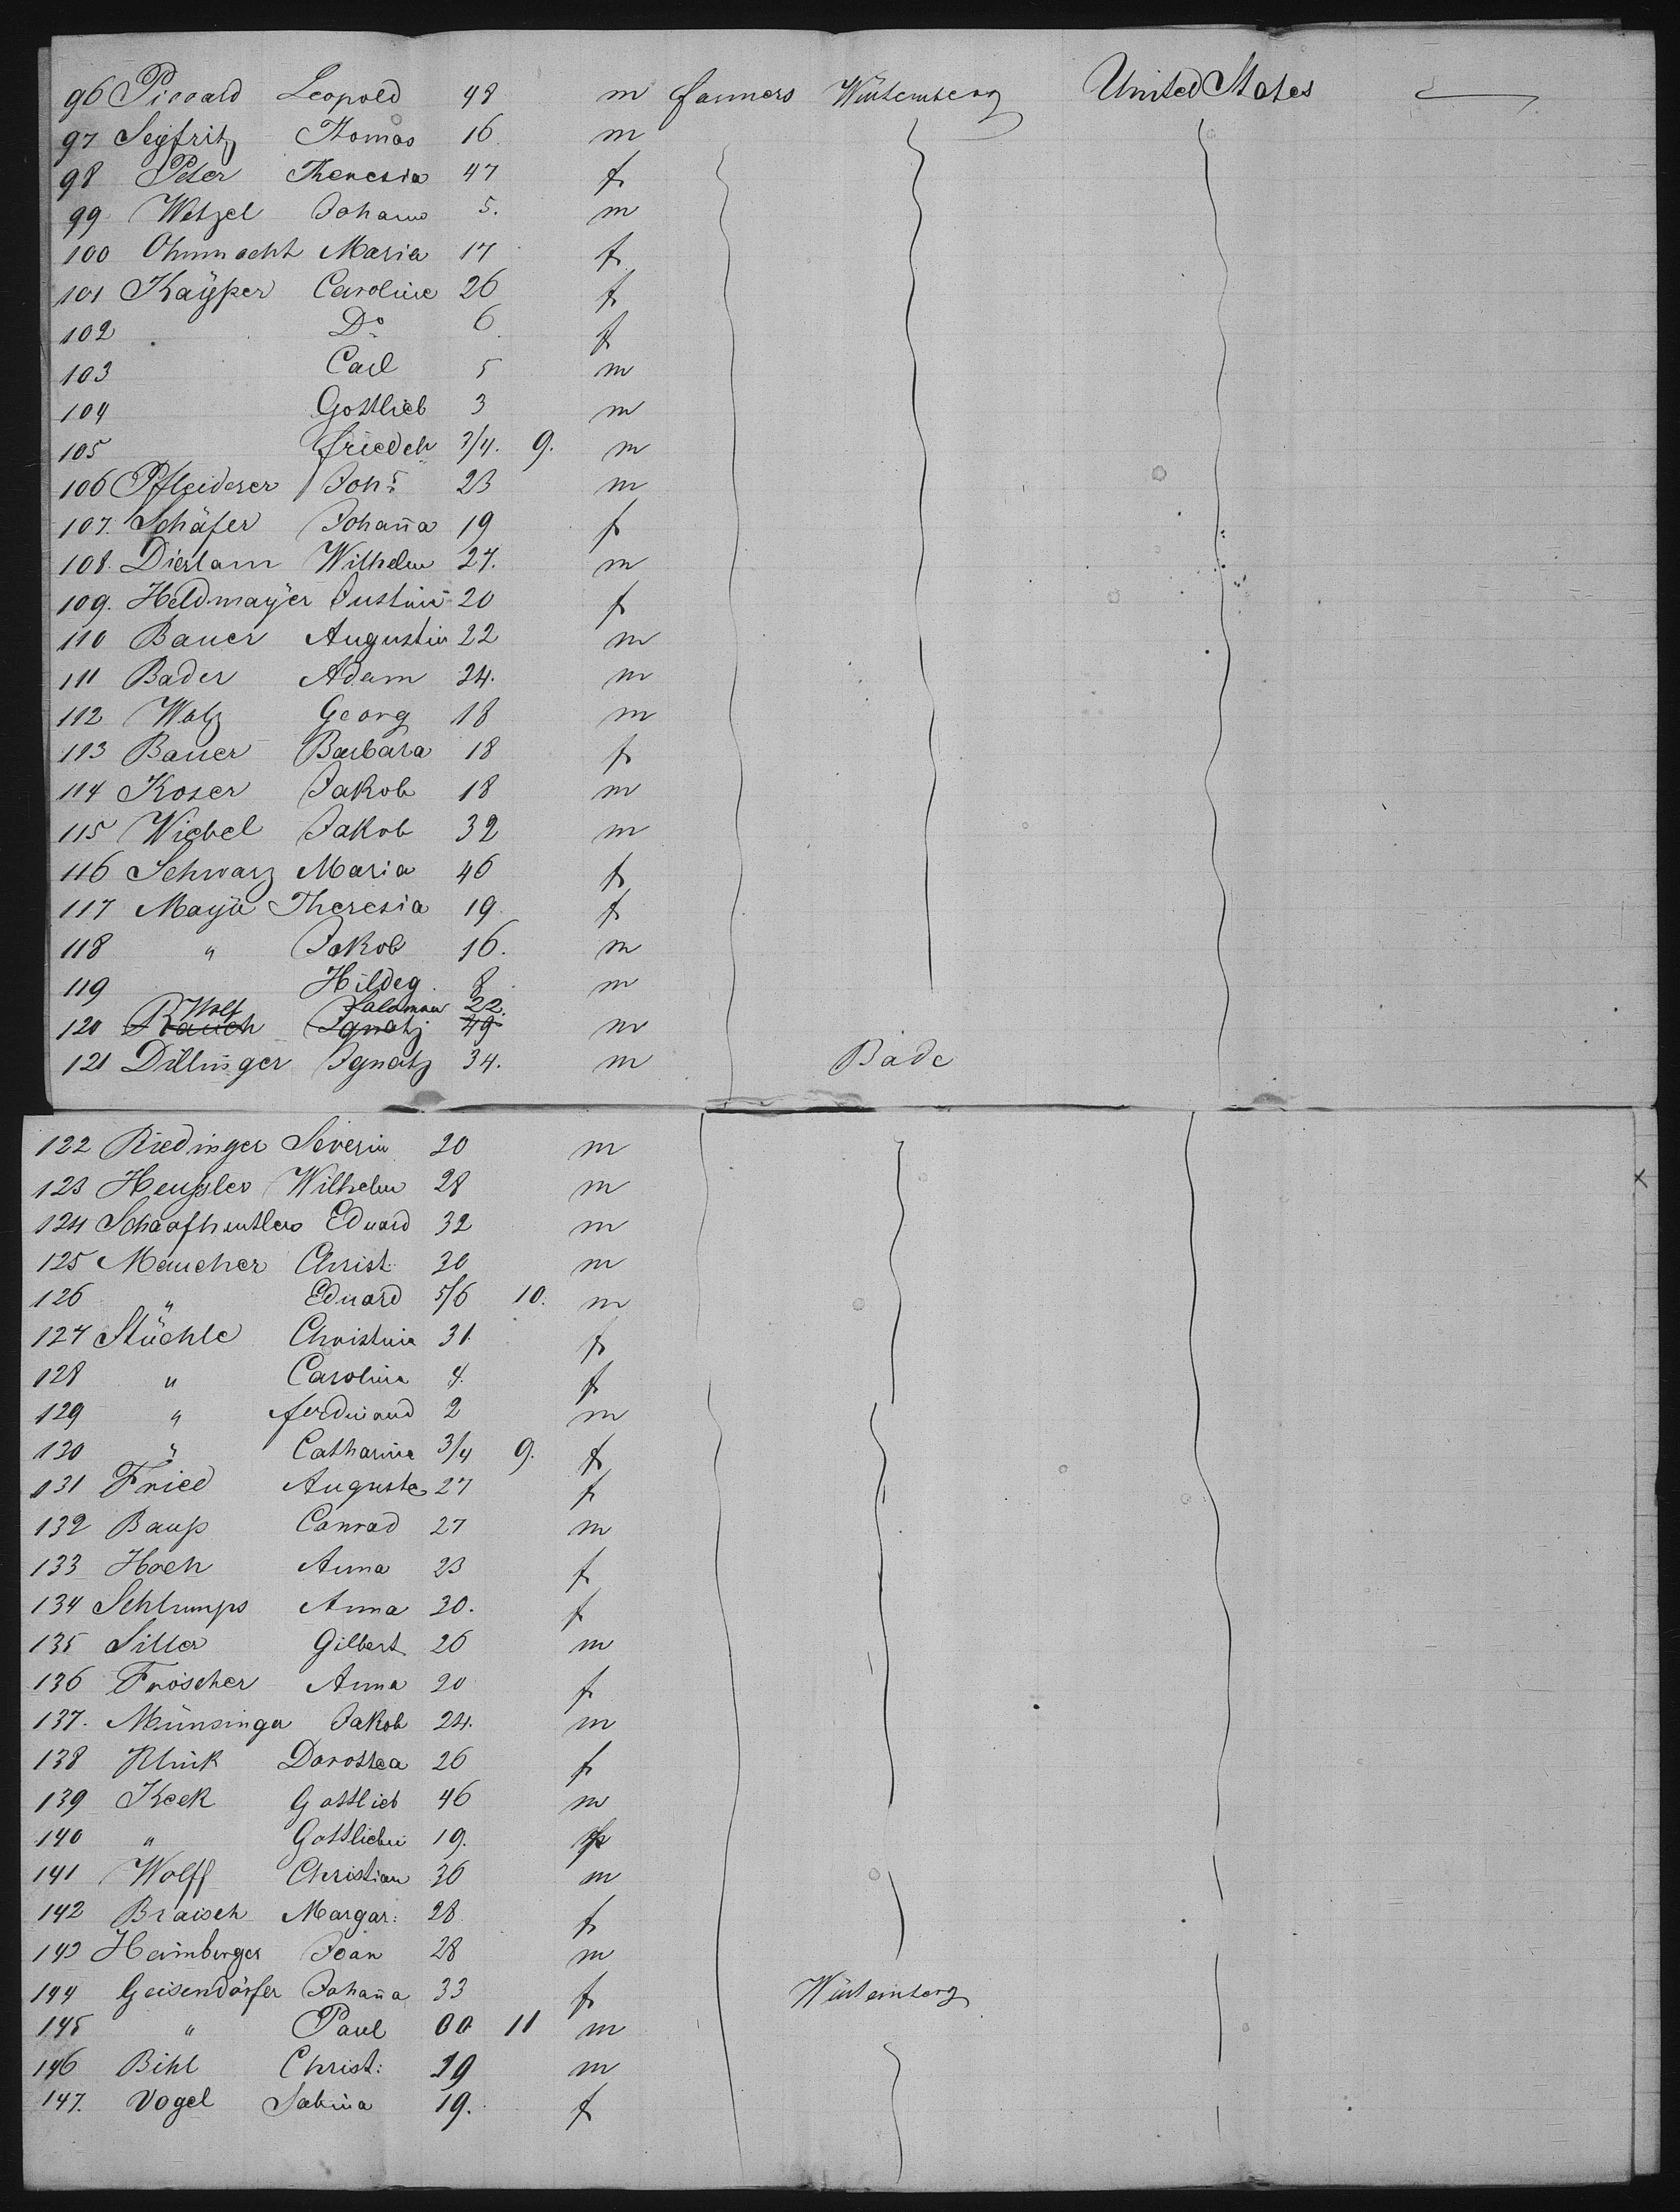 96 Piccard Leopold 48 m farmers Würtemberg United States
97 Segfritz Thomas 16 m
98 Peter Theresia 47 f
99 Wetzel Johann 5. m
100 Ohnmacht Maria 17 f
101 Kayßer Caroline 26 f
102 Do 6 f
103 Carl 5 m
104 Gottlieb 3 m
105 Friedch 3/4. 9. m
106 Pfleiderer Johs 23 m
107. Schäfer Johaña 19 f
108. Dierlam Wilhelm 27. m
109. Heldmayer Justine 20 f
110 Bauer Augustin 22 m
111 Bader Adam 24. m
112 Walz Georg 18 m
113 Bauer Barbara 18 f
114 Koser Jakob 18 m
115 Wiebel Jakob 32 m
116 Schwarz Maria 46 f
117 Theresia 19 f
118 " Jakob 16. m
119 Hildeg. 8 m
Wolf Salomon 22.
120 Rauch Ignatz 49 m
121 Dillinger Ignatz 34. m Bade
122 Riedinger Severin 20 m
123 Heußler Wilhelm 28 m
124 Eduard 32 m
125 Maucher Christ. 30 m
126 " Eduard 5/6 10. m
127 Stüchle Christine 31. f
128 " Carolina 4. f
129 " Ferdinand 2 m
130 " Catharine 3/4 9. f
131 Fried Auguste 27 f
132 Bauß Conrad 27 m
133 Hoch Anna 23 f
134 Schlumps Anna 30. f
135 Siller Gilbert 26 m
136 Fröscher Anna 20 f
137. Münsinger Jakob 24. m
138 Klink Dorothea 26 f
139 Keck Gottlieb 46 m
140 " Gottliebin 19. f
141 Wolff Christian 36 m
142 Braisch Margar: 28 f
143 Heimberger Joan 28 m
144 Geisendörfer Johaña 33 f Würtemberg
145 " Paul 00 11 m
146 Bihl Christ: 29 m
147. Vogel Sabina 19. f